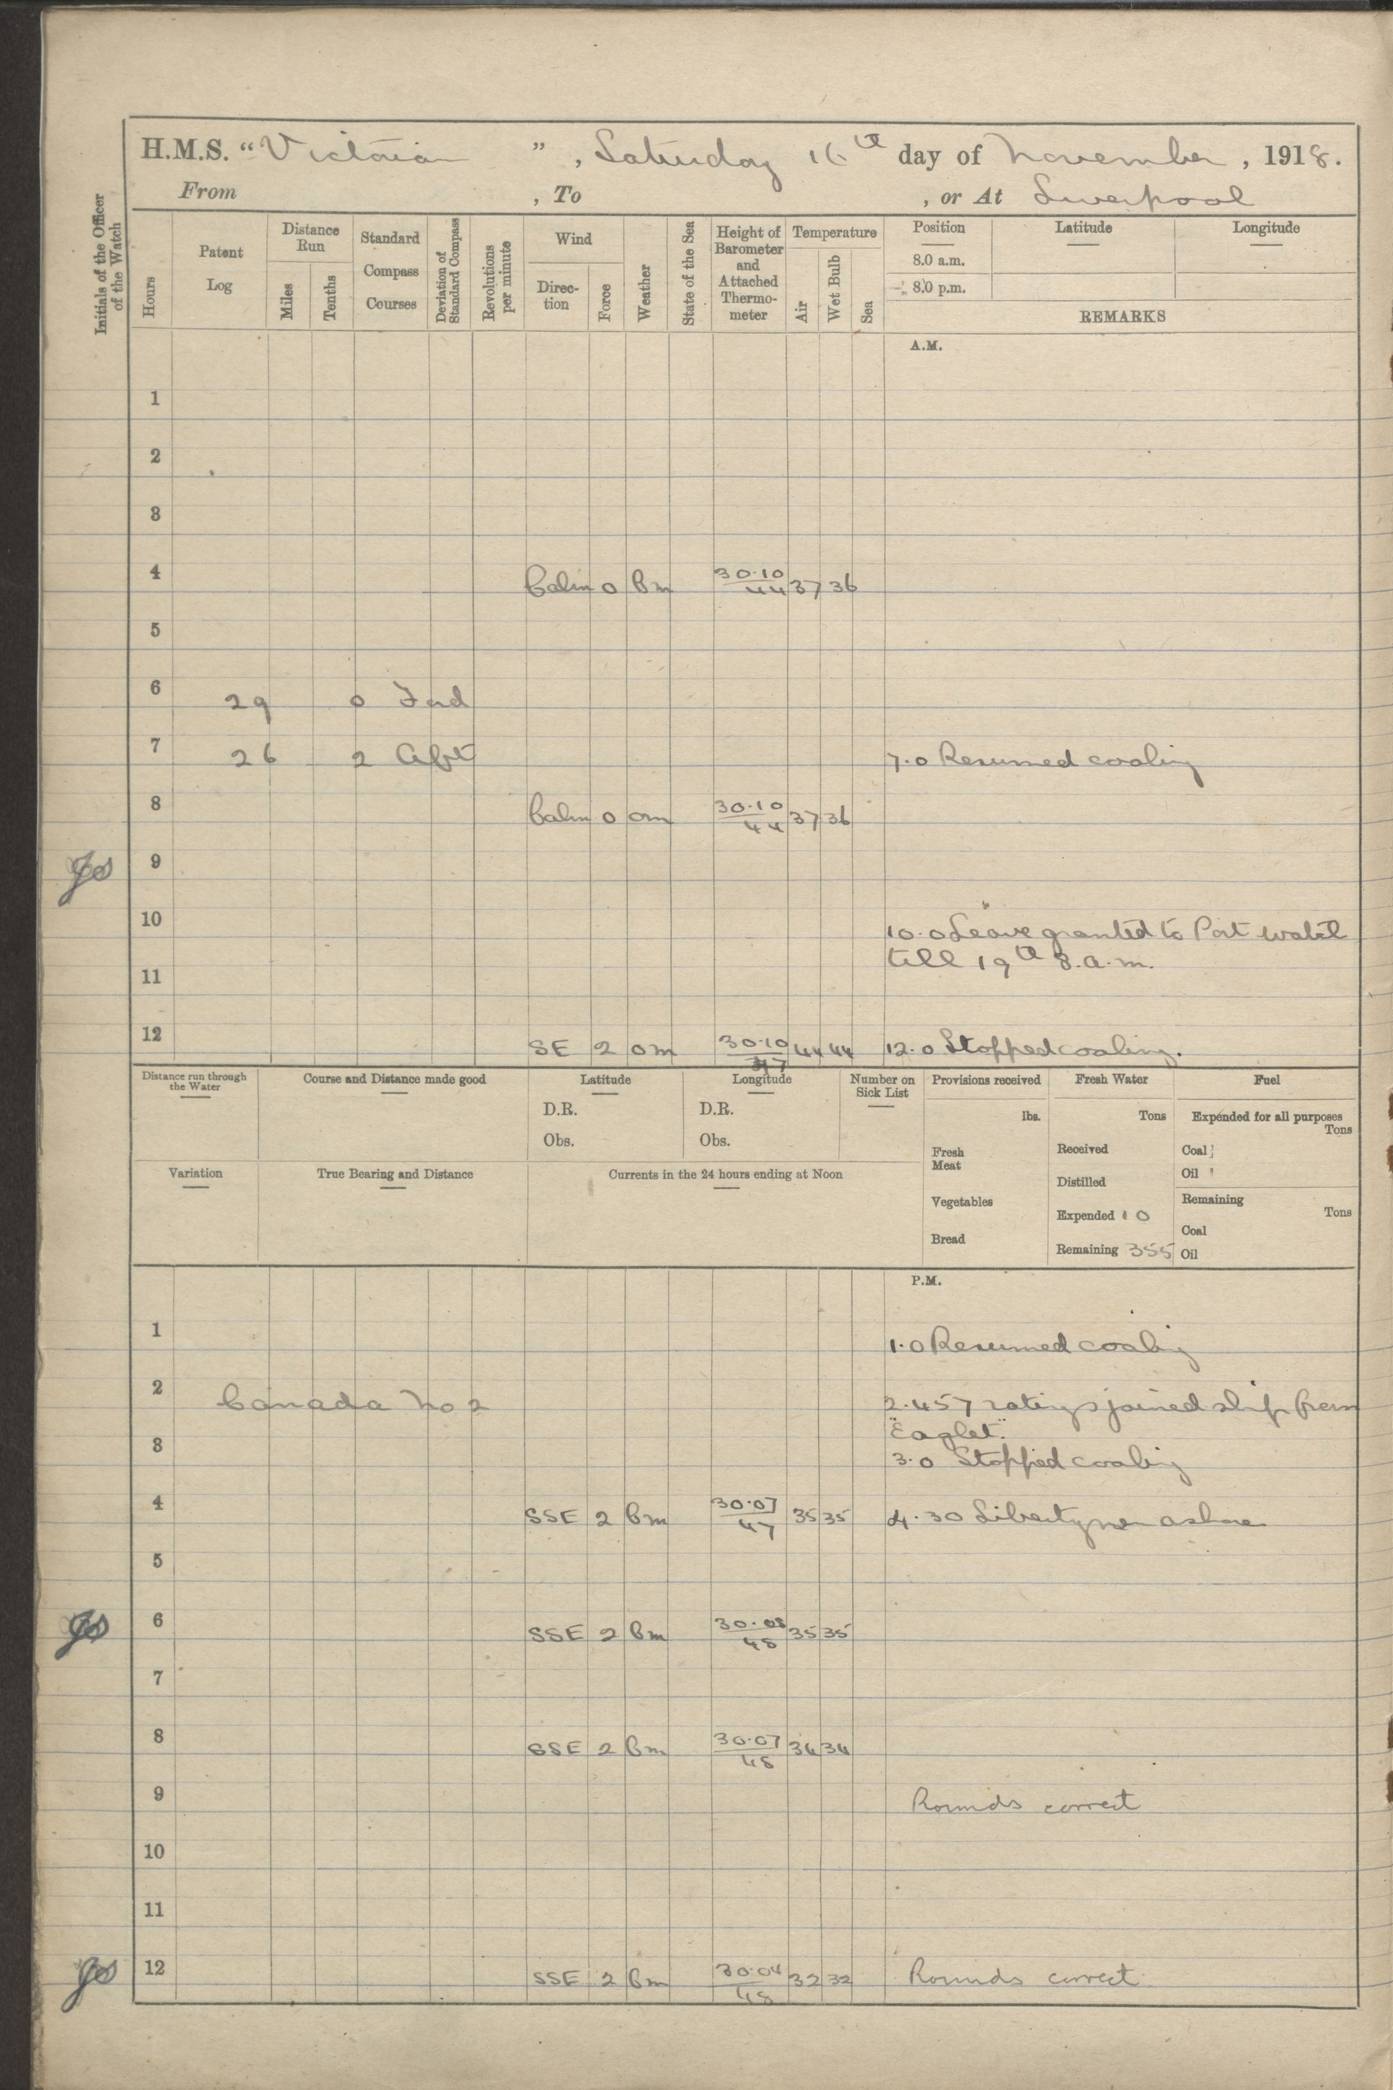 H.M.S. "Victorian", Saturday 16th day of November, 1918.
From , To , or At Liverpool
Initials of the Officer of the Watch
Hours
Patent Log
Distance Run
Miles
Tenths
Standard Compass Courses
Deviation of Standard Compass
Revolutions per minute
Wind
Direc-tion
Force
Weather
State of the Sea
Height of Barometer and Attached Thermo-meter
Temperature
Air
Wet Bulb
Sea
Position
8.0 a.m.
8.0 p.m.
Latitude
Longitude
REMARKS
A.M.
1
2
3
4 Calm 0 bm 30.10/44 37 36
5
6 29 0 Fwd
7 26 2 Aft 7.0 Resumed coaling
8 Calm 0 om 30.10/44 37 36
9
10 10.0 Leave granted to Port watch
till 19th 8.a.m.
11
12 SE 2 om 30.10/47 44 44 12.0 Stopped coaling.
Distance run through the Water
Course and Distance made good
Latitude
D.R.
Obs.
Longitude
D.R.
Obs.
Number on Sick List
Provisions received
lbs.
Fresh Meat
Vegetables
Bread
Fresh Water
Tons
Received
Distilled
Expended 10
Remaining 355
Fuel
Expended for all purposes
Tons
Coal
Oil
Remaining
Tons
Coal
Oil
Variation
True Bearing and Distance
Currents in the 24 hours ending at Noon
P.M.
1 1.0 Resumed coaling
2 Canada No 2 2.45 7 ratings joined ship from
"Eaglet."
3 3.0 Stopped coaling
4 SSE 2 bm 30.07/47 35 35 4.30 Libertymen ashore
5
6 SSE 2 bm 30.08/48 35 35
7
8 SSE 2 bm 30.07/48 34 34
9 Rounds correct
10
11
12 SSE 2 bm 30.04/48 32 32 Rounds correct